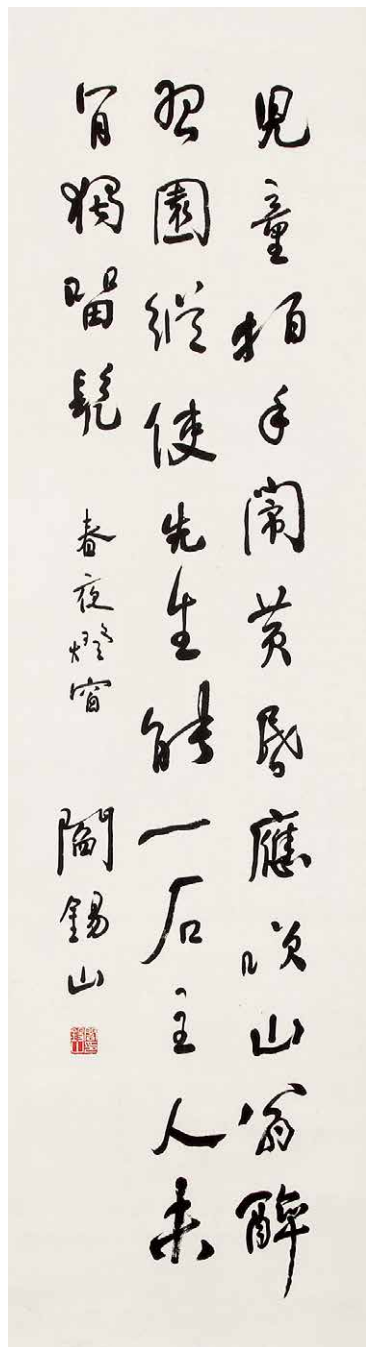 兒童拍手鬧黃昏應咲山翁醉
習園縱使先生能一石主人未
肎獨留髡 春夜燈窗 閻錫山